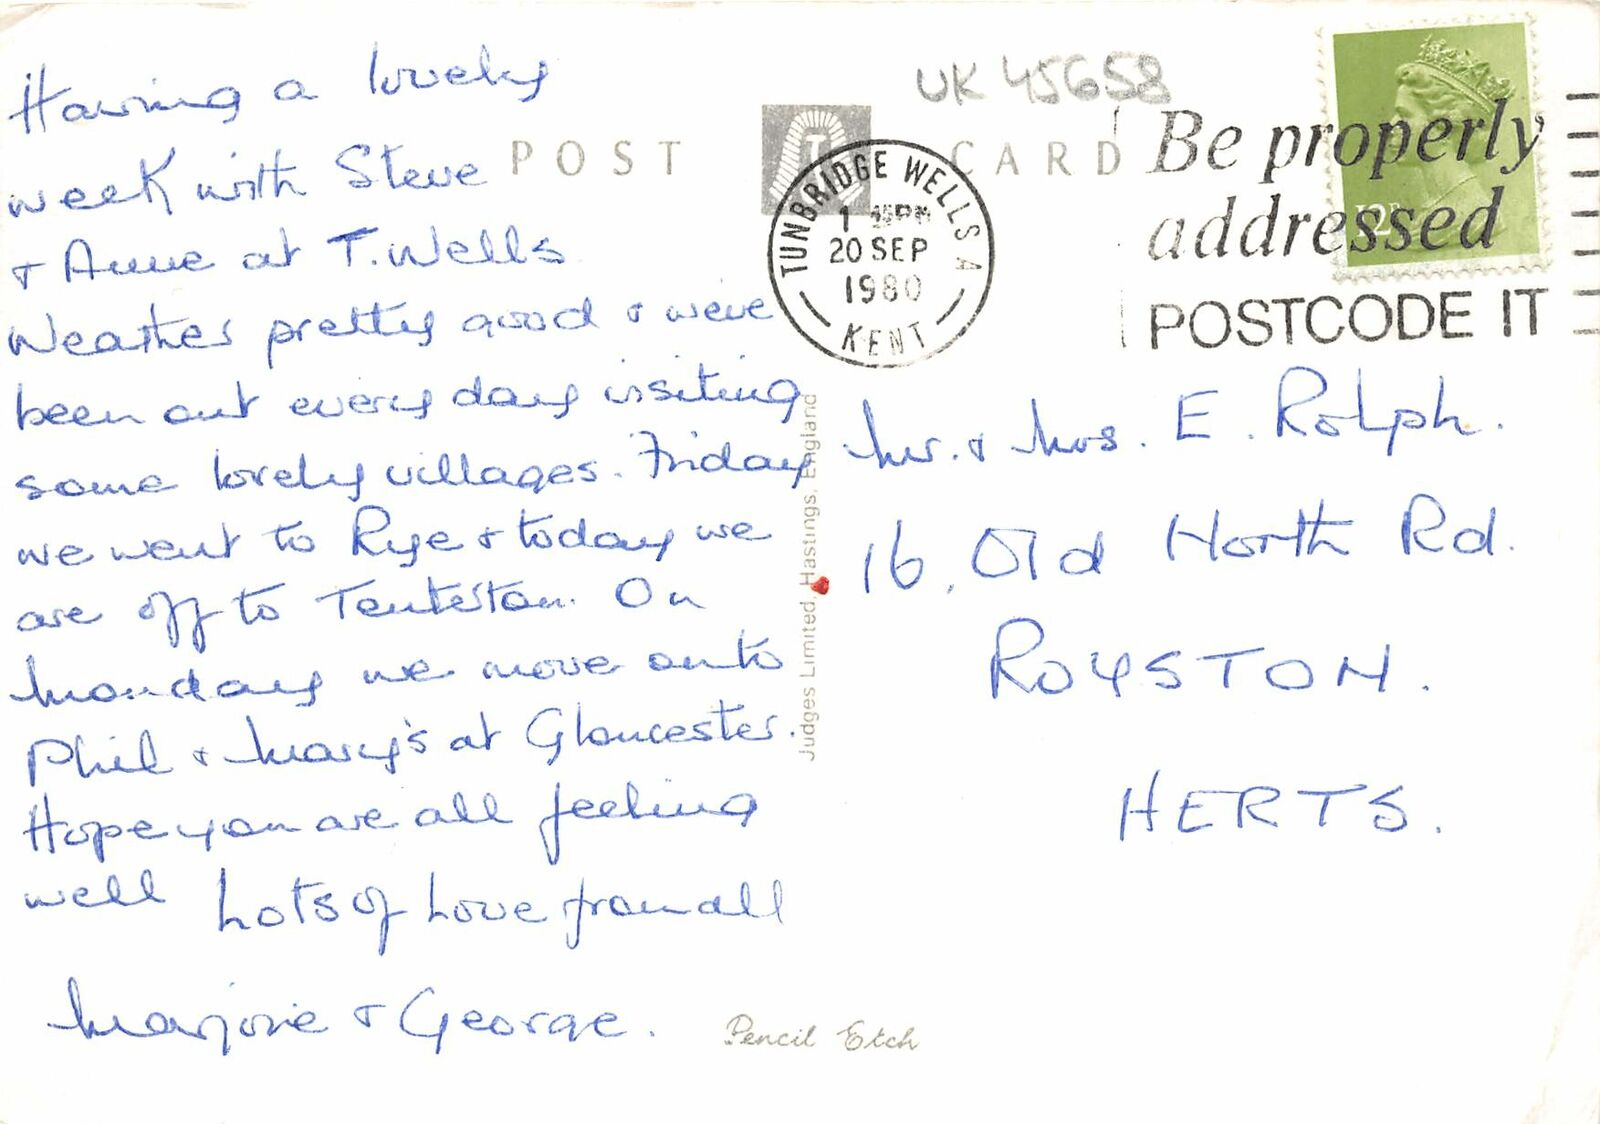 Having a lovely
week with Steve
& Anne at T. Wells
Weather pretty good & weve
been out every day visiting
some lovely villages. Friday
we went to Rye & today we
are off to Tenterton. On
Monday we move onto
Phil & Mary's at Gloucester.
Hope you are all feeling
well Lots of Love from all
Marjorie & George.
POST CARD
UK 45658
TUNBRIDGE WELLS A
1 45PM
20 SEP
1980
KENT
Be properly
addressed
POSTCODE IT
12P
Judges Limited, Hastings, England
Mr. & Mrs. E. Rolph.
16, Old North Rd.
ROYSTON.
HERTS.
Pencil Etch